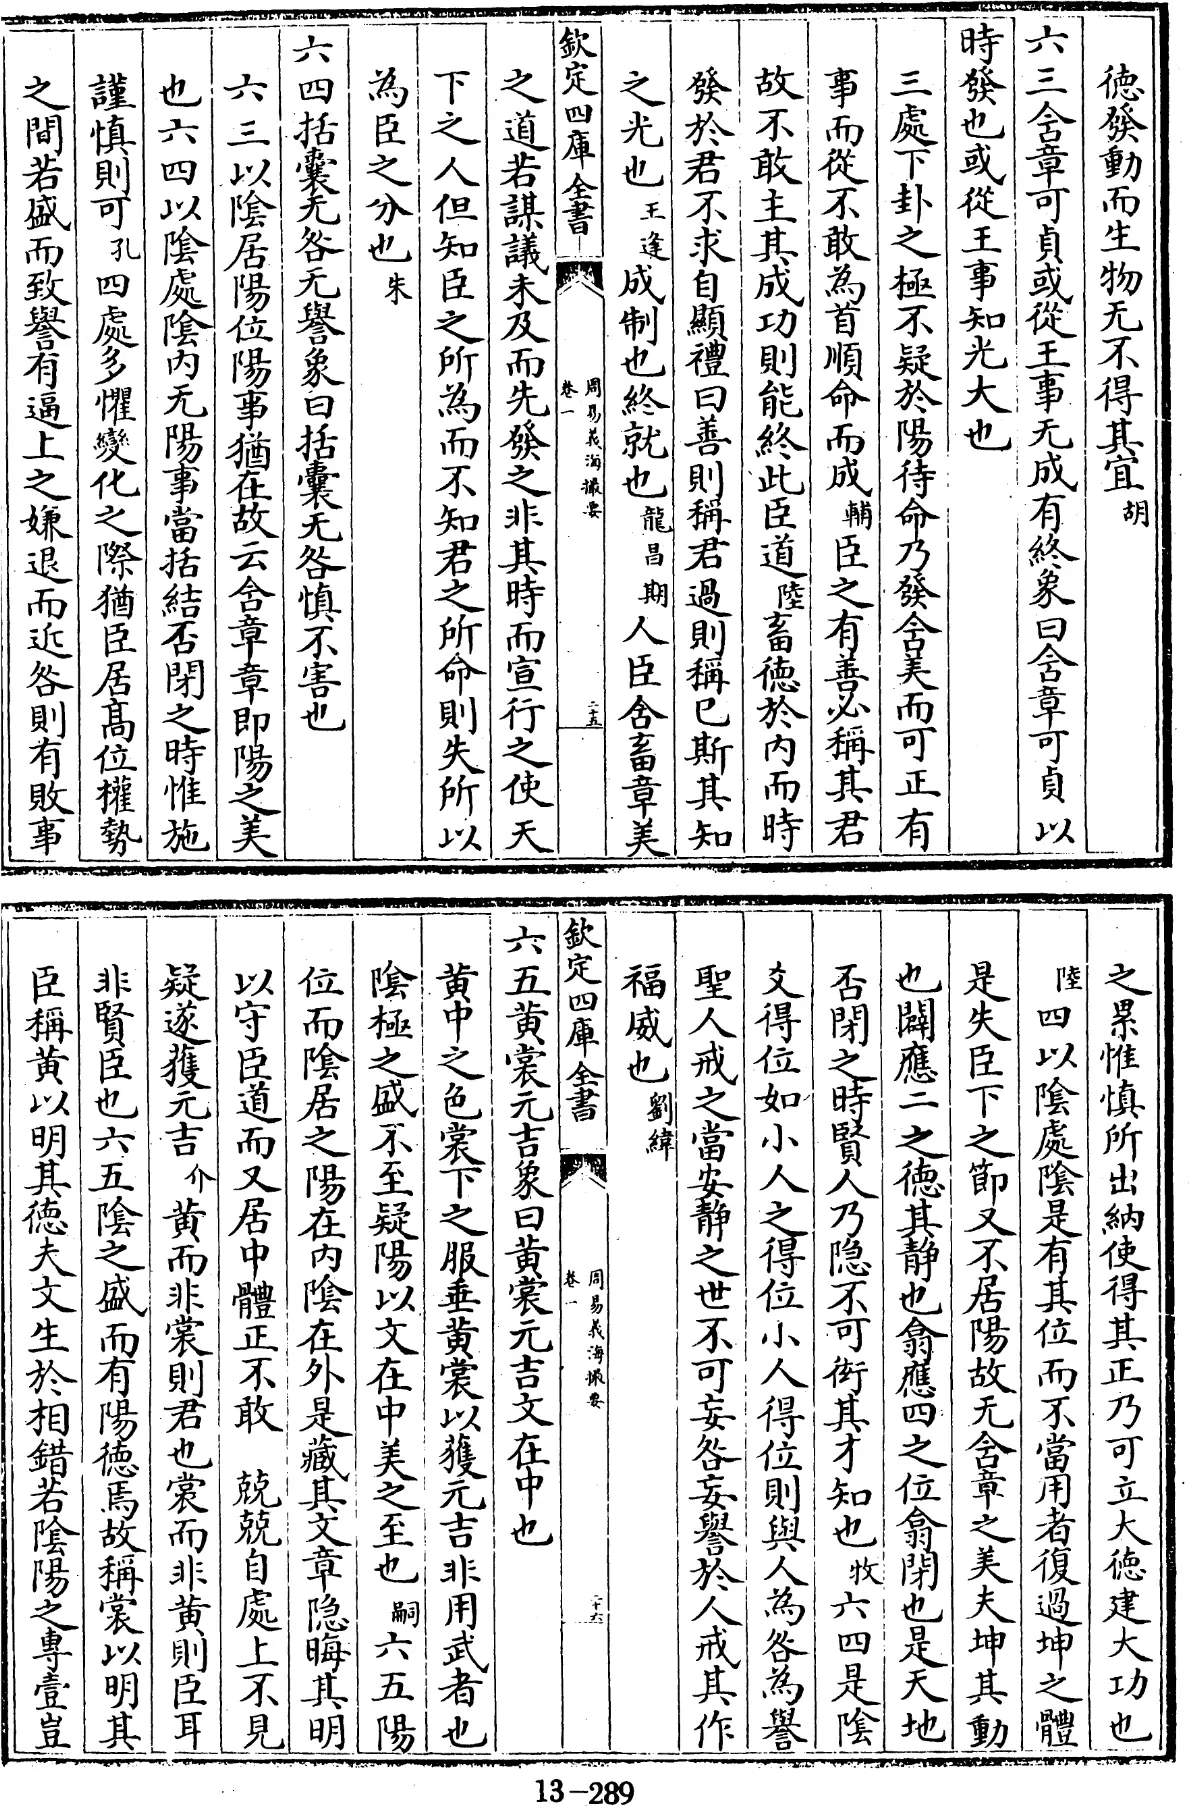 德發動而生物无不得其宜胡
六三含章可貞或從王事无成有終象曰含章可貞以
時發也或從王事知光大也
三處下卦之極不疑於陽待命乃發含美而可正有
事而從不敢為首順命而成輔臣之有善必稱其君
故不敢主其成功則能終此臣道陸畜德於內而時
發於君不求自顯禮曰善則稱君過則稱已斯其知
之光也王逢成制也終就也龍昌期人臣含畜章美
欽定四庫全書
周易義海撮要
卷一
二十五
之道若謀議未及而先發之非其時而宣行之使天
下之人但知臣之所為而不知君之所命則失所以
為臣之分也朱
六四括囊无咎无譽象曰括囊无咎慎不害也
六三以陰居陽位陽事猶在故云含章章即陽之美
也六四以陰處陰内无陽事當括結否閉之時惟施
謹慎則可孔四處多懼變化之際猶臣居髙位權勢
之間若盛而致譽有逼上之嫌退而近咎則有敗事
之累惟慎所出納使得其正乃可立大德建大功也
陸四以陰處陰是有其位而不當用者復過坤之體
是失臣下之節又不居陽故无含章之美夫坤其動
也闢應二之德其靜也翕應四之位翕閉也是天地
否閉之時賢人乃隐不可衒其才知也牧六四是陰
爻得位如小人之得位小人得位則與人為咎為譽
聖人戒之當安靜之世不可妄咎妄譽於人戒其作
福威也劉緯
欽定四庫全書
周易義海撮要
卷一
二十六
六五黄裳元吉象曰黄裳元吉文在中也
黄中之色裳下之服垂黄裳以獲元吉非用武者也
陰極之盛不至疑陽以文在中美之至也嗣六五陽
位而陰居之陽在内陰在外是藏其文章隐晦其明
以守臣道而又居中體正不敢　兢兢自處上不見
疑遂獲元吉介黄而非裳則君也裳而非黄則臣耳
非賢臣也六五陰之盛而有陽德焉故稱裳以明其
臣稱黄以明其德夫文生於相錯若陰陽之專壹豈
13-289